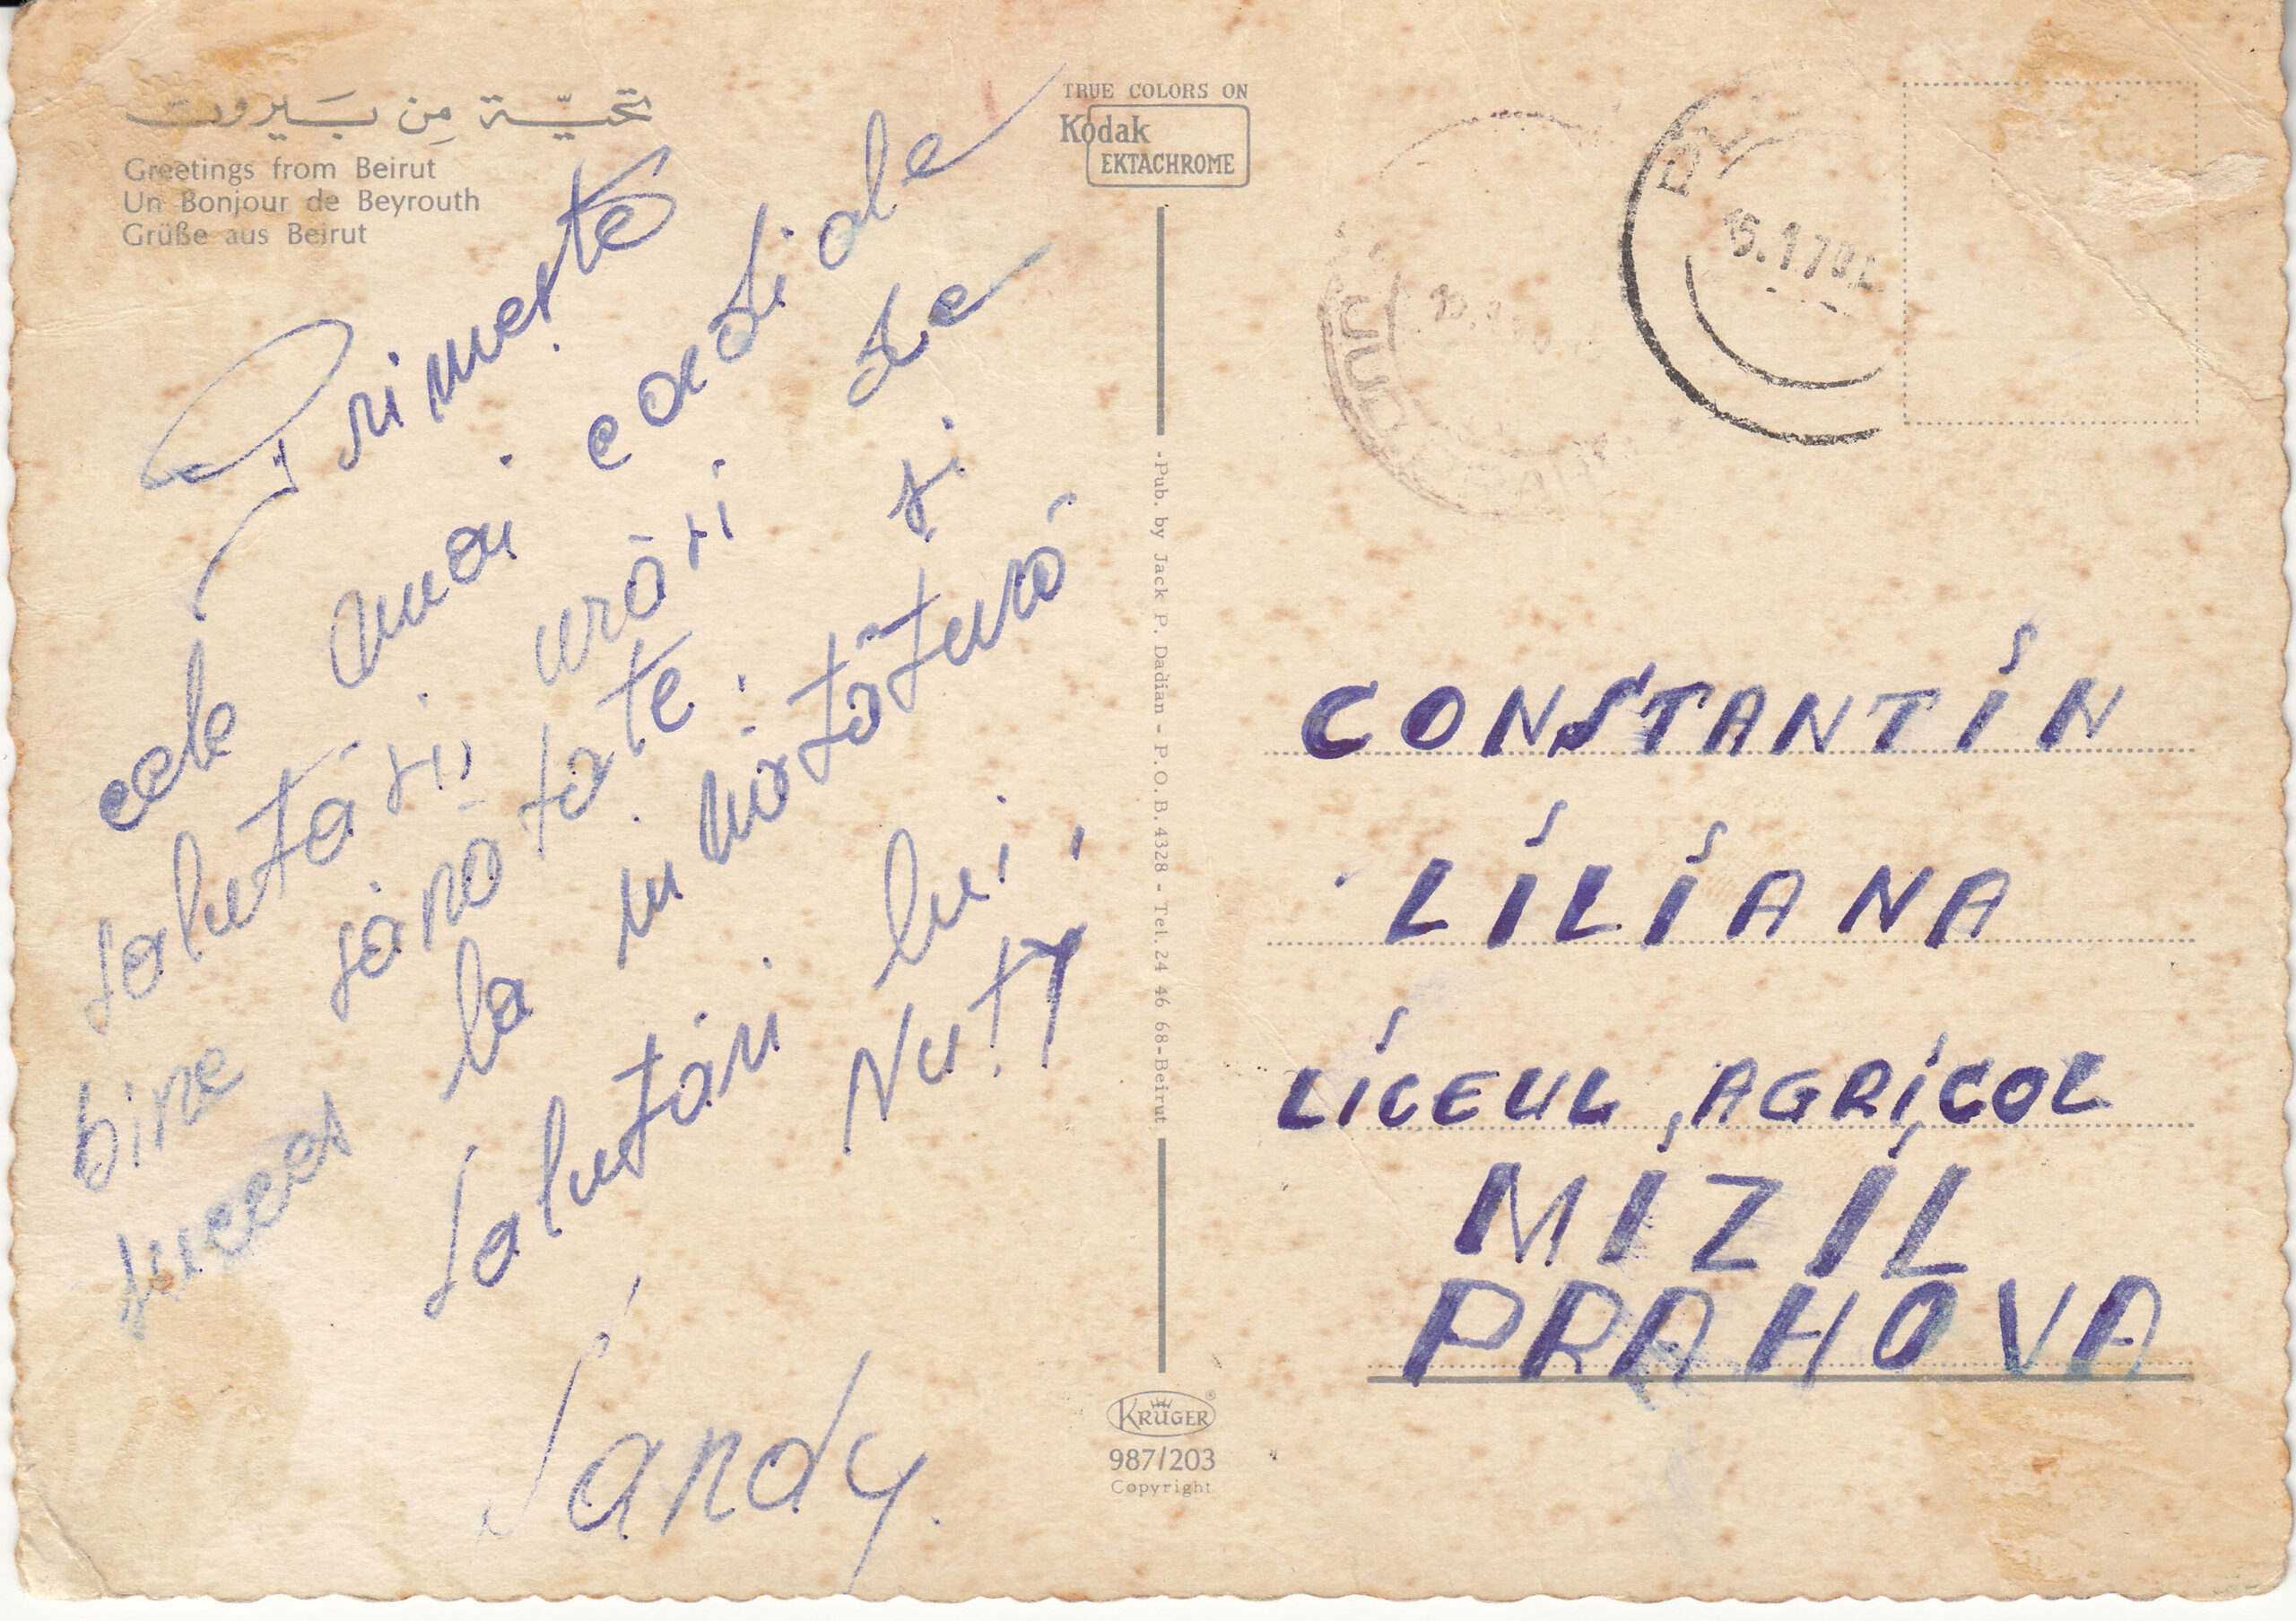 تحيّة مِن بَيروت
Greetings from Beirut
Un Bonjour de Beyrouth
Grüße aus Beirut
Primește
cele mai cordiale
salutări, urări de
bine sănătate și
succes la învățătură
Salutări lui
NUTY
Sandy.
TRUE COLORS ON
Kodak
EKTACHROME
-Pub. by Jack P. Dadian - P.O.B. 4328 - Tel. 24 46 68-Beirut
KRÜGER
987/203
Copyright
PL
15.1.70
JUD
CONSTANTIN
LILIANA
LICEUL AGRICOL
MIZIL
PRAHOVA